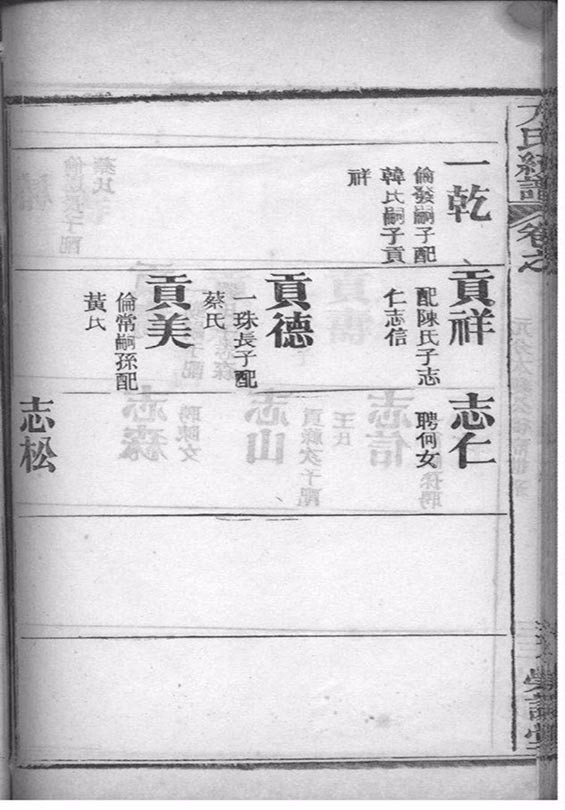 方氏經譜
卷之
一乾
倫發嗣子配
韓氏嗣子貢
祥
貢祥
配陳氏子志
仁志信
貢德
一珠長子配
蔡氏
貢美
倫常嗣孫配
黃氏
志仁
聘何女
志松